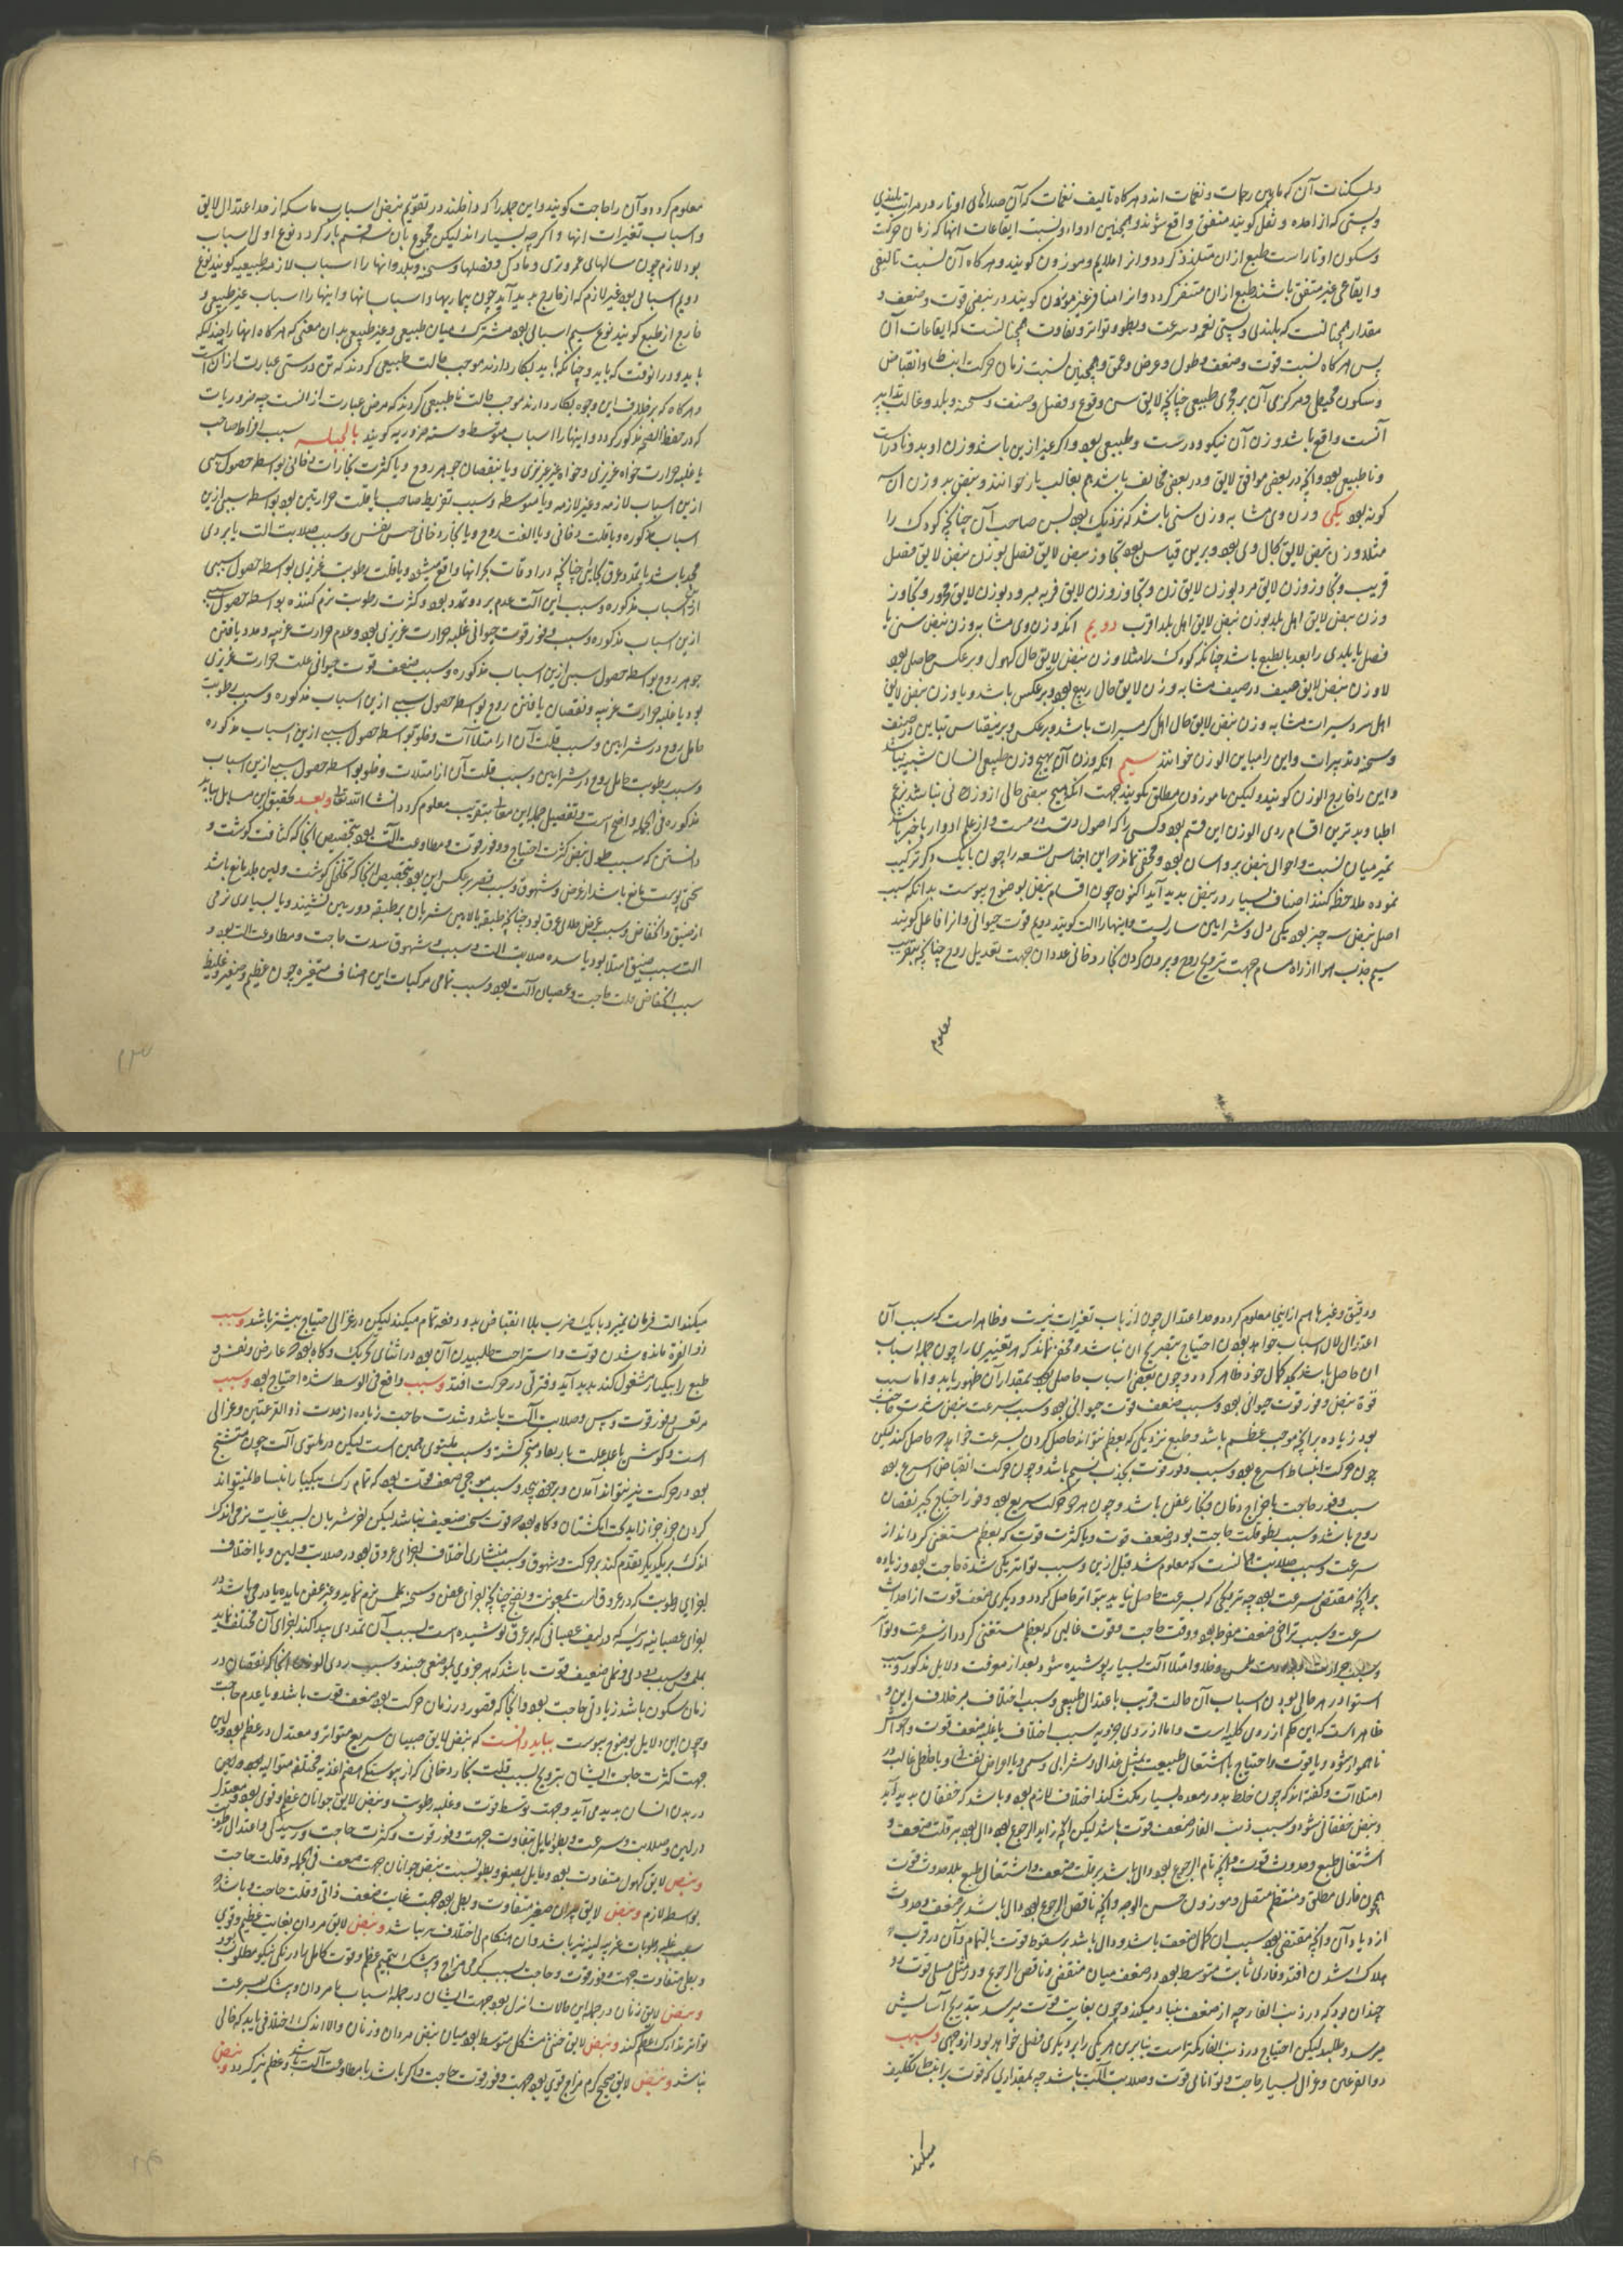 و سکنات آن که مابین رجات و نغمات اند و هرکاه تالیف نغمات که آن صداهای اوتار در مراتب بلندی
و پستی که از احده و ثقل کویند متفق واقع شوند و همچنین ادوار و نسبت ایقاعات انها که زمان حرکت
و سکون اوتار است طبع ازان متلذذ کردد و انرا ملایم و موزون کویند و هرکاه آن نسبت تالیفی
و ایقاعی غیر متفق باشند طبع ازان متنفر کردد و انرا متنافر غیر موزون کویند در نبض قوت و ضعف و
مقدار همچنانست که بلندی و پستی نغمه و سرعت و بطو و تواتر و تفاوت همچنانست که ایقاعات آن
پس هرکاه نسبت قوت و ضعف و طول و عرض و عمق و همچنین نسبت زمان حرکت انبساط و انقباض
و سکون محیطی و مرکزی آن بر مجری طبیعی چنانچه لایق سن و نوع و فصل و صنف و سحنه و بلد و غالب تدابیر
آنست واقع باشد وزن آن نیکو و درست و طبیعی بود و اکر غیر ازین باشد وزن او بد و نادرست
و ناطبیعی بود و آنچه در بعضی موافق لایق و در بعضی مخالف باشد هم بغالب بازخوانند و نبض بد وزن ان سه
کونه بود یکی وزن وی مشابه وزن سنی باشد که نزدیک بود بسن صاحب آن چنانچه کودک را
مثلا وزن نبض لایق بحال وی بود و برین قیاس بود تجاوز نبض لایق فصل بوزن نبض لایق فصل
قریب و تجاوز وزن لایق مرد بوزن لایق زن و تجاوز وزن لایق فربه مبرود بوزن لایق محرور و تجاوز
وزن نبض لایق اهل بلد بوزن نبض لایق اهل بلد اقرب دویم انکه وزن وی مشابه وزن نبض سنی یا
فصل یا بلدی را بعد بالطبع باشد چنانکه کودک را مثلا وزن نبض لایق حال کهول و برعکس حاصل بود
لا وزن نبض لایق صیف در صیف مشابه وزن لایق حال ربیع بود و برعکس باشد و یا وزن نبض لایق
اهل سردسیرات مشابه وزن نبض لایق حال اهل کرمسیرات باشد و برعکس و برینقیاس تباین در صنف
و سحنه و تدبیرات و این را مباین الوزن خوانند سیم انکه وزن آن بهیچ وزن طبیعی انسان شبیه نباشد
و این را خارج الوزن کویند و لیکن ناموزون مطلق نکویند جهت آنکه هیچ نبضی خالی از وزن فی نباشد نزد
اطبا و بدترین اقسام ردی الوزن این قسم بود و کسی را که اصول درست و از علم ادوار باخبر باشد
تمیز میان نسبت و احوال نبض برو اسان بود و مخفی نماند که این اجناس تسعه را چون بایکدیکر ترکیب
نموده ملاحظه کنند اصناف بسیار در نبض پدید آید اکنون چون اقسام نبض بوضوح پیوست بدانکه سبب
اصل نبض سه چیز بود یکی دل و شرایین ساریست و اینها را الت کویند دویم قوت حیوانی و انرا فاعل کویند
سیم جذب هوا از راه مسام جهت ترویح روح و بردن کردن بخار دخانی عددان جهت تعدیل روح چنانچه بتقریب
معلوم
معلوم کردد و آن را حاجت کویند و این جمله را که داخلند در تقویم نبض اسباب ماسکه از حد اعتدال لایق
و اسباب تغیرات انها و اکرچه بسیار اند لیکن مجموع بان سه قسم باز کردد نوع اول اسباب
بود لازم چون سالهای عمر و نری و مادکی و فصلها و سحنه و بلد و انها را اسباب لازمه طبیعیه کویند نوع
دویم اسبابی بود غیر لازم که از خارج پدید آید چون بیماریها و اسباب انها و اینها را اسباب غیر طبیعی و
خارج از طبع کویند نوع سیم اسبابی بود مشترک میان طبیعی و غیر طبیعی بدان معنی که هرکاه اینها را چندانکه
باید و درانوقت که باید و چنانکه باید بکار دارند موجب حالت طبیعی کردند که تن درستی عبارت ازان است
و هرکاه که برخلاف این وجوه بکار دارند موجب حالت ناطبیعی کردند که مرض عبارت ازانست چه ضروریات
که در حفظ الصحه مذکور کردد و اینها را اسباب متوسط و سته ضروریه کویند بالجمله سبب افراط صاحب
یا غلبه حرارت خواه غریزی و خواه غیر غریزی و یا بنقصان جوهر روح و یا کثرت بخارات دخانی بواسطه حصول سببی
ازین اسباب لازمه و غیر لازمه و یا متوسطه و سبب تفریط صاحب یا قلت حرارتین بود بواسطه سببی ازین
اسباب مذکوره و یا قلت دخانی و یا الفت روح و یا بخار دخانی حس نفس و سبب صلابت الت یا بردی
مجمد باشد یا تمدد عروق بحدیکه چنانچه در اوقات بحرانها واقع میشود و یا قلت رطوبت غریزی بواسطه حصول سببی
ازین اسباب مذکوره و سبب لین الت عدم برد و تمدد بود و کثرت رطوبت نرم کننده بواسطه حصول سببی
ازین اسباب مذکوره و سبب وفور قوت حیوانی غلبه حرارت غریزی بود و عدم حرارت غریبه و مدد یافتن
جوهر روح بواسطه حصول سببی ازین اسباب مذکوره و سبب ضعف قوت حیوانی قلت حرارت غریزی
بود یا غلبه حرارت غریبه و نقصان یافتن روح بواسطه حصول سببی ازین اسباب مذکوره و سبب رطوبت
حامل روح در شرایین و سبب قلت آن از امتلا آلت و خلو بواسطه حصول سببی ازین اسباب مذکوره
و سبب رطوبت حامل روح در شرایین و سبب قلت آن از امتلات و خلو بواسطه حصول سببی ازین اسباب
مذکوره فی الجمله واضح است و تفصیل جمله این معانی بتقریب معلوم کردد انشاالله تعالی و بعد تحقیق این مسایل بباید
دانستن که سبب طول نبض کثرت احتیاج و وفور قوت و مطاوعت الت بود بتخصیص انجا که کثافت کوشت و
سختی پوست مانع باشد از عرض و شهوق و سبب قصر برعکس این بود بتخصیص انجا که تخلخل کوشت و لین جلد مانع باشد
از ضیق و انخفاض و سبب عرض خلای عرق بود چنانچه طبقه بالایین شریان بر طبقه دورین نشیند و یا بسیاری نرمی
الت سبب ضیق امتلا بود یا سده صلابت الت و سبب شهوق شدت حاجت و مطاوعت الت بود و
سبب انخفاض قلت حاجت و عصیان آلت بود و سبب تمامی مرکبات این اصناف متغیره چون عظیم و صغیر و غلیظ
و دقیق و غیرها هم از اینجا معلوم کردد و حد اعتدال چون از باب تغیرات نیست و ظاهر است که سبب آن
اعتدال اسباب خواهد بود احتیاج بتصریح ان نباشد و مخفی نماند که هر تغییری را چون جمله اسباب
ان حاصل باشد بکمال خود ظاهر کردد و چون بعضی اسباب حاصل بود بمقدار آن ظهور یابد و اما سبب
قوة نبض وفور قوت حیوانی بود و سبب ضعف قوت حیوانی بود و سبب سرعت نبض شدت حاجت
بود زیاده برانچه موجب عظم باشد و طبع نزدیکی که بعظم نتواند حاصل کردن بسرعت خواهد حاصل کند لیکن
چون حرکت انبساط اسرع بود سبب وفور قوت بجذب نسیم باشد و چون حرکت انقباض اسرع بود
سبب وفور حاجت باخراج دخان و بخار عفن باشد و چون هر دو حرکت سریع بود وفور احتیاج بجبر نقصان
روح باشد و سبب بطو قلت حاجت بود و ضعف قوت و یا کثرت قوت که بعظم مستغنی کرداند از
سرعت و سبب صلابت همانست که معلوم شد قبل ازین و سبب تواتر یکی شدة حاجت بود زیاده
برانچه مقتضی سرعت بود چه نزدیکی که بسرعت حاصل نیاید بتواتر حاصل کردد و دیکری ضعف قوت از احداث
سرعت و سبب تراخی ضعف مفرط بود و وقت حاجت و قوت غالبی که بعظم مستغنی کردد از سرعت و تواتر
و سبب حرارت و خلا و امتلا آلت بسیار پوشیده نشود بعد از معرفت دلایل مذکور و سبب
استوا در هر حالی بودن اسباب آن حالت قریب باعتدال طبیعی و سبب اختلاف برخلاف این و
ظاهر است که این حکم از روی کلیه است و اما از روی جزویه سبب اختلاف یا غلبه ضعف قوت و حواس
ناهموار شود و یا قوت و احتیاج با اشتغال طبیعت بمثل غذایی و شرابی و سمی و یا اعراض نفسانی و یا خلطی غالب در
امتلات و کفته اند که چون خلط بد در معده بسیار مکث کند اختلاف لازم بود و باشد که خفقان پدید آید
و نبض خفقانی شود و سبب ذنب الفار ضعف قوت باشد لیکن انچه زاید الرجوع بود دال بود بر قلت ضعف و
اشتغال طبع و حدوث قوت و انچه تام الرجوع بود دال باشد بر قلت ضعف و اشتغال طبع بلا حدوث قوت
همچون فاری مطلق و منتظم متصل و موزون حسن الوجه و انچه ناقص الرجوع بود دال باشد بر ضعف و حدوث
ازدیاد آن و انچه منقضی بود سبب ان کمال ضعف باشد و دال باشد بر سقوط قوت بالتمام و آن در قرب
هلاک شدن افتد و فاری ثابت متوسط بود در ضعف میان منقضی و ناقص الرجوع و در مثل مسلی قوت رو
چندان بود که در ذنب الفار چه از ضعف بنیاد میکند و چون بغایت قوت میرسد بتدریج آسایش
میرسد و طلبد لیکن احتیاج در ذنب الفار بیکتراست بنابرین هر یکی را بر دیکری فضل خواهد بود از وجهی و سبب
ذوالقرعتین و غزالی بسیار حاجت و توانائی قوت و صلابت آلت باشد چه بمقداری که قوت بر انبساط تکلیف
میکند
میکند الت فرمان نمیبرد بایک ضرب بلا انقباض بدو دفعه تمام میکند لیکن در غزالی احتیاج بیشتر باشد و سبب
ذوالفتره مانده شدن قوت و استراحت طلبیدن آن بود در اثنای تحریک و کاه بود که عارضی و نفس
طبع را بیکبار مشغول کند پدید آید و فترتی در حرکت افتد و سبب واقع فی الوسط شده احتیاج بود و سبب
مرتعش وفور قوت و یبس و صلابت آلت باشد و شدت حاجت زیاده از مدت ذوالقرعتین و غزالی
است و سبب ملتوی همین است لیکن در ملتوی آلت چون متشنج
بود در حرکت نیز نتواند آمدن و بر خود پیچد و سبب موجی ضعف قوت بود که تمام رک بیکبار انبساط نمیتواند
کردن جزو جزو از اید تحت انکشتان و کاه بود که قوت سخت ضعیف نباشد لیکن جرم شریان بسبب غایت نرمی اندک
اندک بر یکدیکر تقدم کند بر حرکت و شهوق و سبب منشاری اختلاف اجزای عروق بود در صلابت و لین و یا اختلاف
اجزای رطوبت که در عروق است بعفونت و نضج چنانچه اجزای عفن و سحنه بلمس نرم نماید و غیر عفن مایده یا در می باشد در
اجزای عصبانیه ریه که در لیف عصبانی که بر عرق پوشیده است بسبب آن تمددی پیدا کند اجزای آن مختلف نماید
بلمس و سبب دودی و نملی ضعیف قوت باشد که هر جزوی بموضعی جنبد و سبب ردی الوزن انجا که نقصان در
زمان سکون باشد زیادتی حاجت بود و انجا که قصور در زمان حرکت بود ضعف قوت باشد و یا عدم حاجت
و چون این دلایل بوضوح پیوست بباید دانست که نبض لایق صبیان سریع متواتر و معتدل در عظم بود و لین
جهت کثرت حاجت ایشان بترویح بسبب قلت بخار دخانی که از پیوستکی هضم اغذیه مختلفه متوالیه بود و لین
در بدن انسان پدید می آید و جهت توسط قوت و غلبه رطوبت و نبض لایق جوانان عظیم و قوی بود و معتدل
در لین و صلابت و سرعت و بطو مایل بتفاوت جهت وفور قوت و کثرت حاجت و رسیدکی و اعتدال رطوبت
و نبض لایق کهول متفاوت بود و مایل بصغر و بطو نسبت بنبض جوانان جهت ضعف فی الجمله و قلت حاجت
بواسطه لازم و نبض لایق پیران صغیر متفاوت و بطی بود جهت غایت ضعف ذاتی و قلت حاجت و باشد که
بسبب غلبه رطوبات غریبه لین نیز باشد و ان هنکام بی اختلاف نباشد و نبض لایق مردان بغایت عظیم و قوی
و بطی متفاوت جهت وفور قوت و حاجت بسبب کرمی مزاج و بی شک ابتهیج عظم و قوت کامل بادرنکی نیکو مطلوب بود
و نبض لایق زنان در جمله این حالات انزل بود جهت ایشان در جمله اسباب با مردان و بی شک بسرعت
تواتر تدارک عظم کند و نبض لایق خنثی مشکل متوسط بود میان نبض مردان و زنان و الا اندک اختلافی یابد که خالی
نباشد و نبض لایق صحیح کرم مزاج قوی بود جهت وفور قوت حاجت و اکر باشد با مطاوعت آلت باشد و عظم نیز کردد و نبض